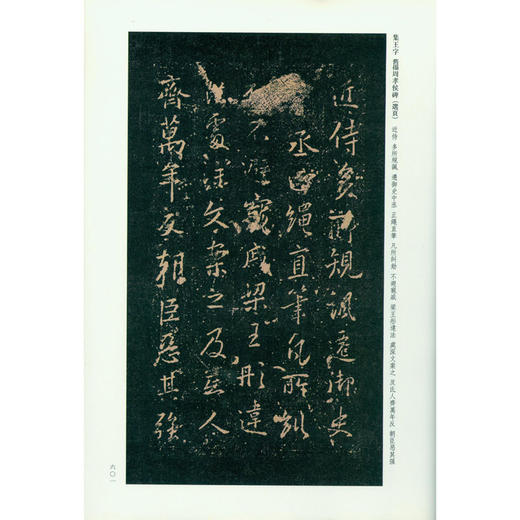 集王字 舊搨周孝侯碑（選頁） 近侍 多所規諷 遷御史中丞 正繩直筆 凡所糾劾 不避寵戚 梁王彤違法 處深文案之 及氐人齊萬年反 朝臣惡其强
近侍多所規諷遷御史
丞正繩直筆凡所糾
不避寵戚梁王彤違
法處深文案之及氐人
齊萬年反朝臣惡其強
六〇一